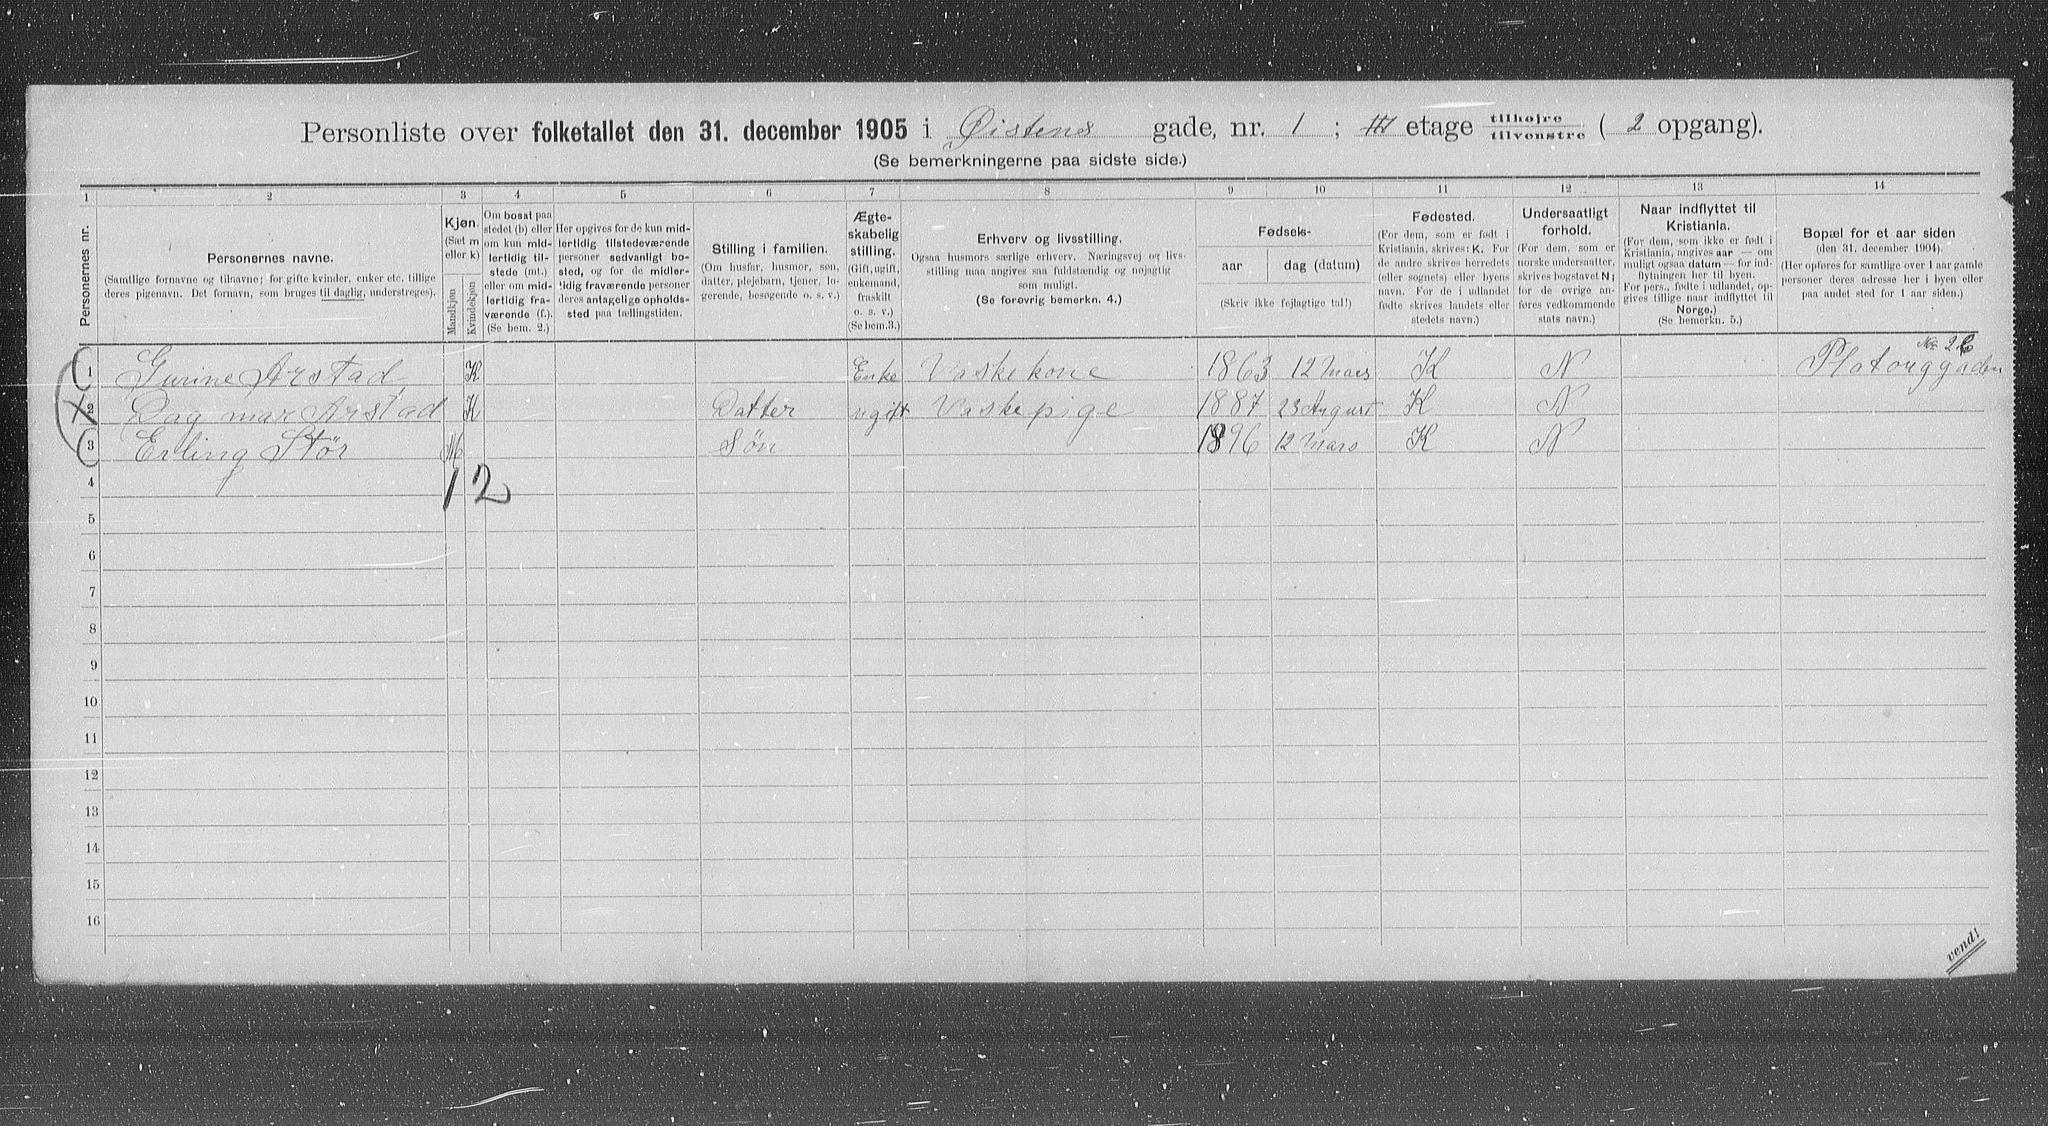 Personliste over folketallet den 31. december 1905 i Øistens gade, nr. 1 ; III etage tilhøjre tilvenstre ( 2 opgang).
(Se bemerkningerne paa sidste side.)
1 2 3 4 5 6 7 8 9 10 11 12 13 14
Personernes nr.
Personernes navne.
(Samtlige fornavne og tilnavne; for gifte kvinder, enker etc. tillige
deres pigenavn. Det fornavn, som bruges til daglig, understreges).
Kjøn.
(Sæt m
eller k)
Mandkjøn
Kvindekjøn
Om bosat paa
stedet (b) eller
om kun mid-
lertidig til-
stede (mt.)
eller om mid-
lertidig fra-
værende (f.).
(Se bem. 2.)
Her opgives for de kun mid-
lertidig tilstedeværende
personer sedvanligt bo-
sted, og for de midler-
tidig fraværende personer
deres antagelige opholds-
sted paa tællingstiden.
Stilling i familien.
(Om husfar, husmor, søn,
datter, plejebarn, tjener, lo-
gerende, besøgende o. s. v.)
Ægte-
skabelig
stilling.
(Gift, ugift,
enkemand,
fraskilt
o. s. v.)
(Se bem.3.)
Erhverv og livsstilling.
Ogsaa husmors særlige erhverv. Næringsvej og livs-
stilling maa angives saa fuldstændig og nøjagtig
som muligt.
(Se forøvrig bemerkn. 4.)
Fødsels-
aar
dag (datum)
(Skriv ikke fejlagtige tal!)
Fødested.
(For dem, som er født i
Kristiania, skrives: K. For
de andre skrives herredets
(eller sognets) eller byens
navn. For de i udlandet
fødte skrives landets eller
stedets navn.)
Undersaatligt
forhold.
(For dem, som er
norske undersaatter,
skrives bogstavet N;
for de øvrige an-
føres vedkommende
stats navn.)
Naar indflyttet til
Kristiania.
(For dem, som ikke er født i
Kristiania, angives aar — om
muligt ogsaa datum — for ind-
flytningen her til byen.
For pers., fødte i udlandet, op-
gives tillige naar indflyttet til
Norge.)
(Se bemerkn. 5.)
Bopæl for et aar siden
(den 31. december 1904).
(Her opføres for samtlige over 1 aar gamle
personer deres adresse her i byen eller
paa andet sted for 1 aar siden.)
1 Gurine Arstad K Enke Vaskekone 1863 12 Mars K N Platouggaden
2 Dag mar Arstad K Datter ugift Vaskepige 1887 23 August K N
3 Erling Stör M Søn 1896 12 Mars K N
1 2
4
5
6
7
8
9
10
11
12
13
14
15
16
vend!